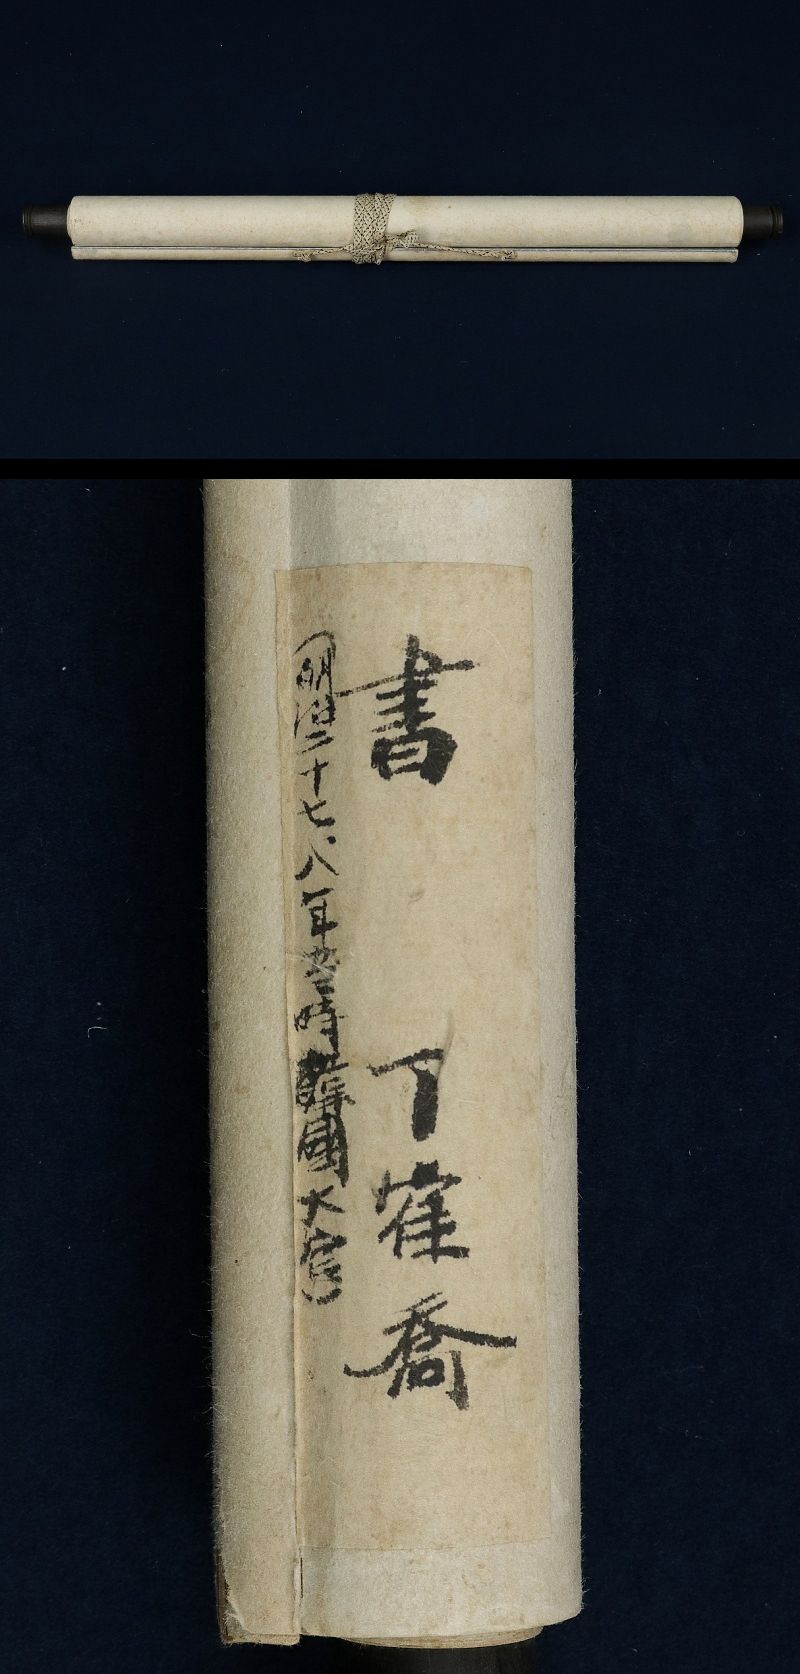 書 丁寉喬
(明治二十七、八年当時韓國大官)